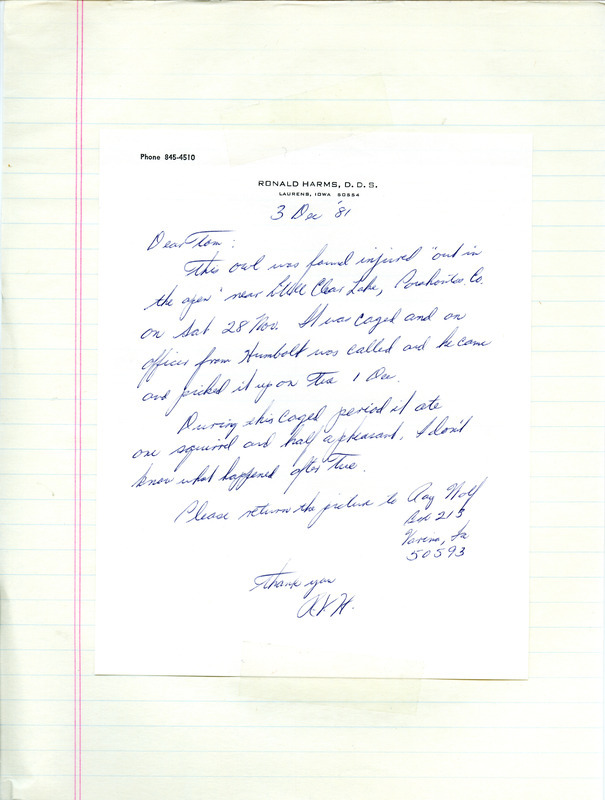 Phone 845-4510
RONALD HARMS, D. D. S.
LAURENS, IOWA 50554
3 Dec '81
Dear Tom:
This owl was found injured "out in
the open" near Little Clear Lake, Pocahontas Co.
on Sat 28 Nov. It was caged and an
officer from Humbolt was called and he came
and picked it up on Tue 1 Dec.
During this caged period it ate
one squirrel and half a pheasant. I don't
know what happened after Tue.
Please return the picture to Ray Wolf
Box 215
Varina, Ia
50593
Thank you
R.V.H.